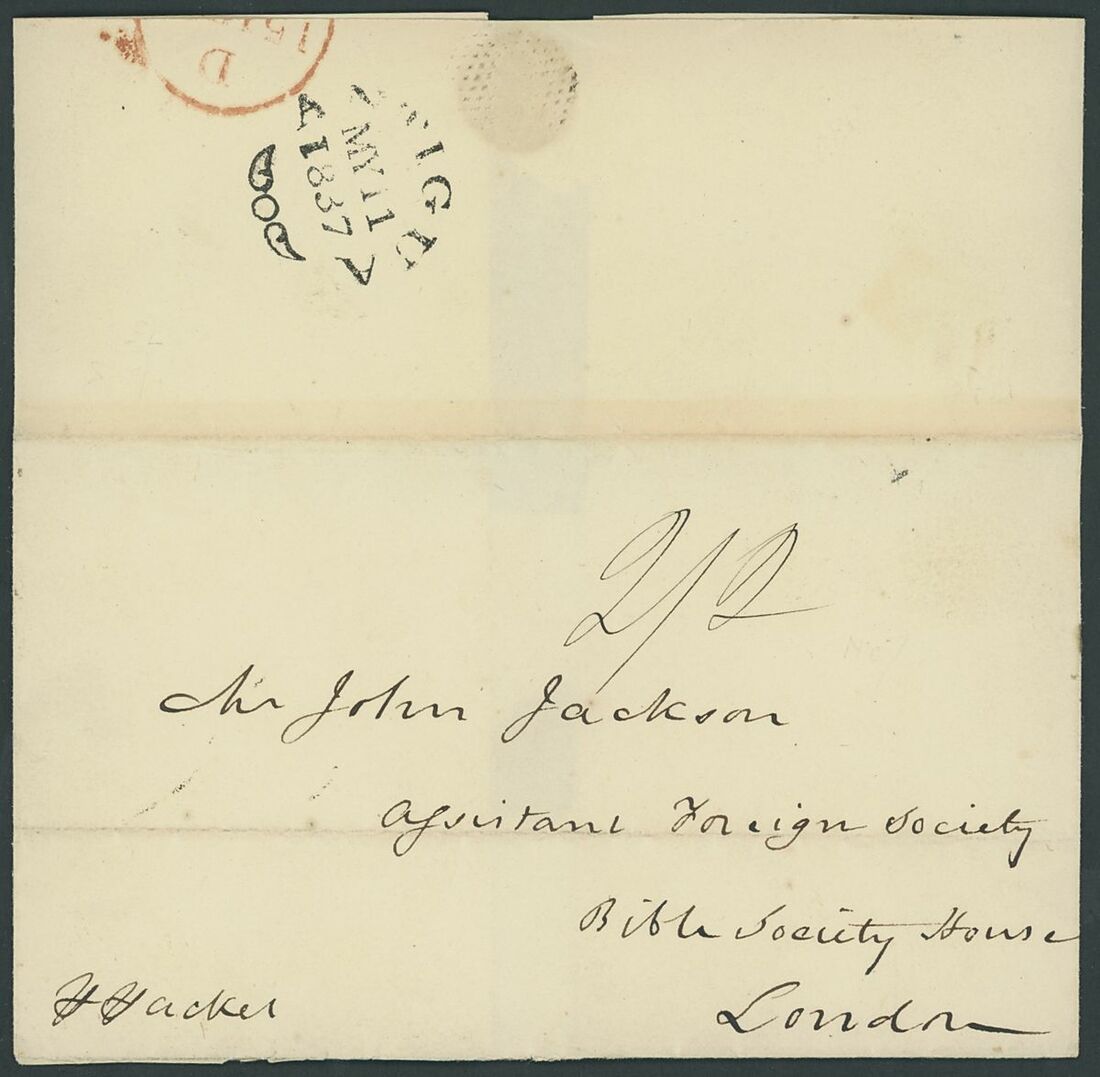 D
15
ANTIGUA
MY 11
1837
2/2
Mr John Jackson
Assistant Foreign Society
Bible Society House
Packet
London